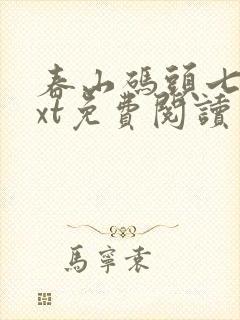 春山碼頭七
xt免費閱讀
馬寧袁